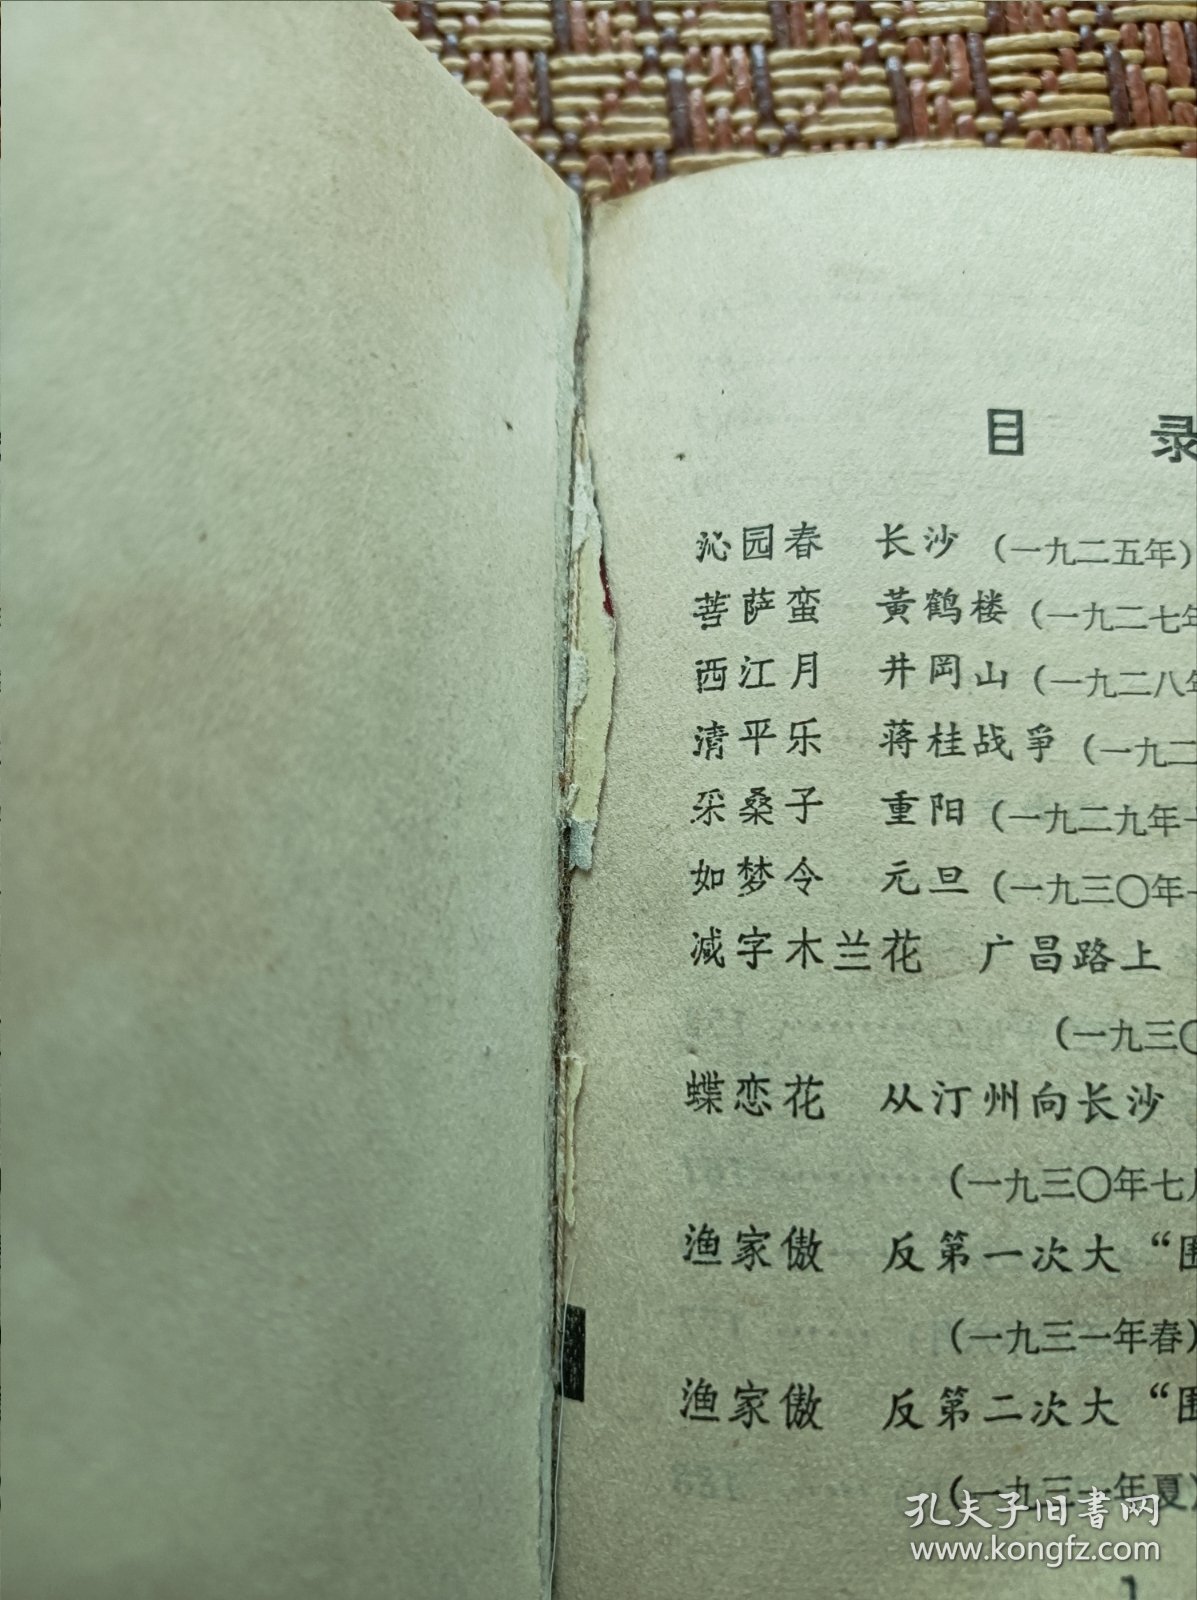 目 录
沁园春 长沙 (一九二五年)
菩萨蛮 黄鹤楼 (一九二七年
西江月 井冈山 (一九二八年
清平乐 蒋桂战争 (一九二
采桑子 重阳 (一九二九年
如梦令 元旦 (一九三〇年
减字木兰花 广昌路上
(一九三〇
蝶恋花 从汀州向长沙
(一九三〇年七月
渔家傲 反第一次大“围
(一九三一年春)
渔家傲 反第二次大“围
(一九三一年夏)
1
孔夫子旧书网
www.kongfz.com